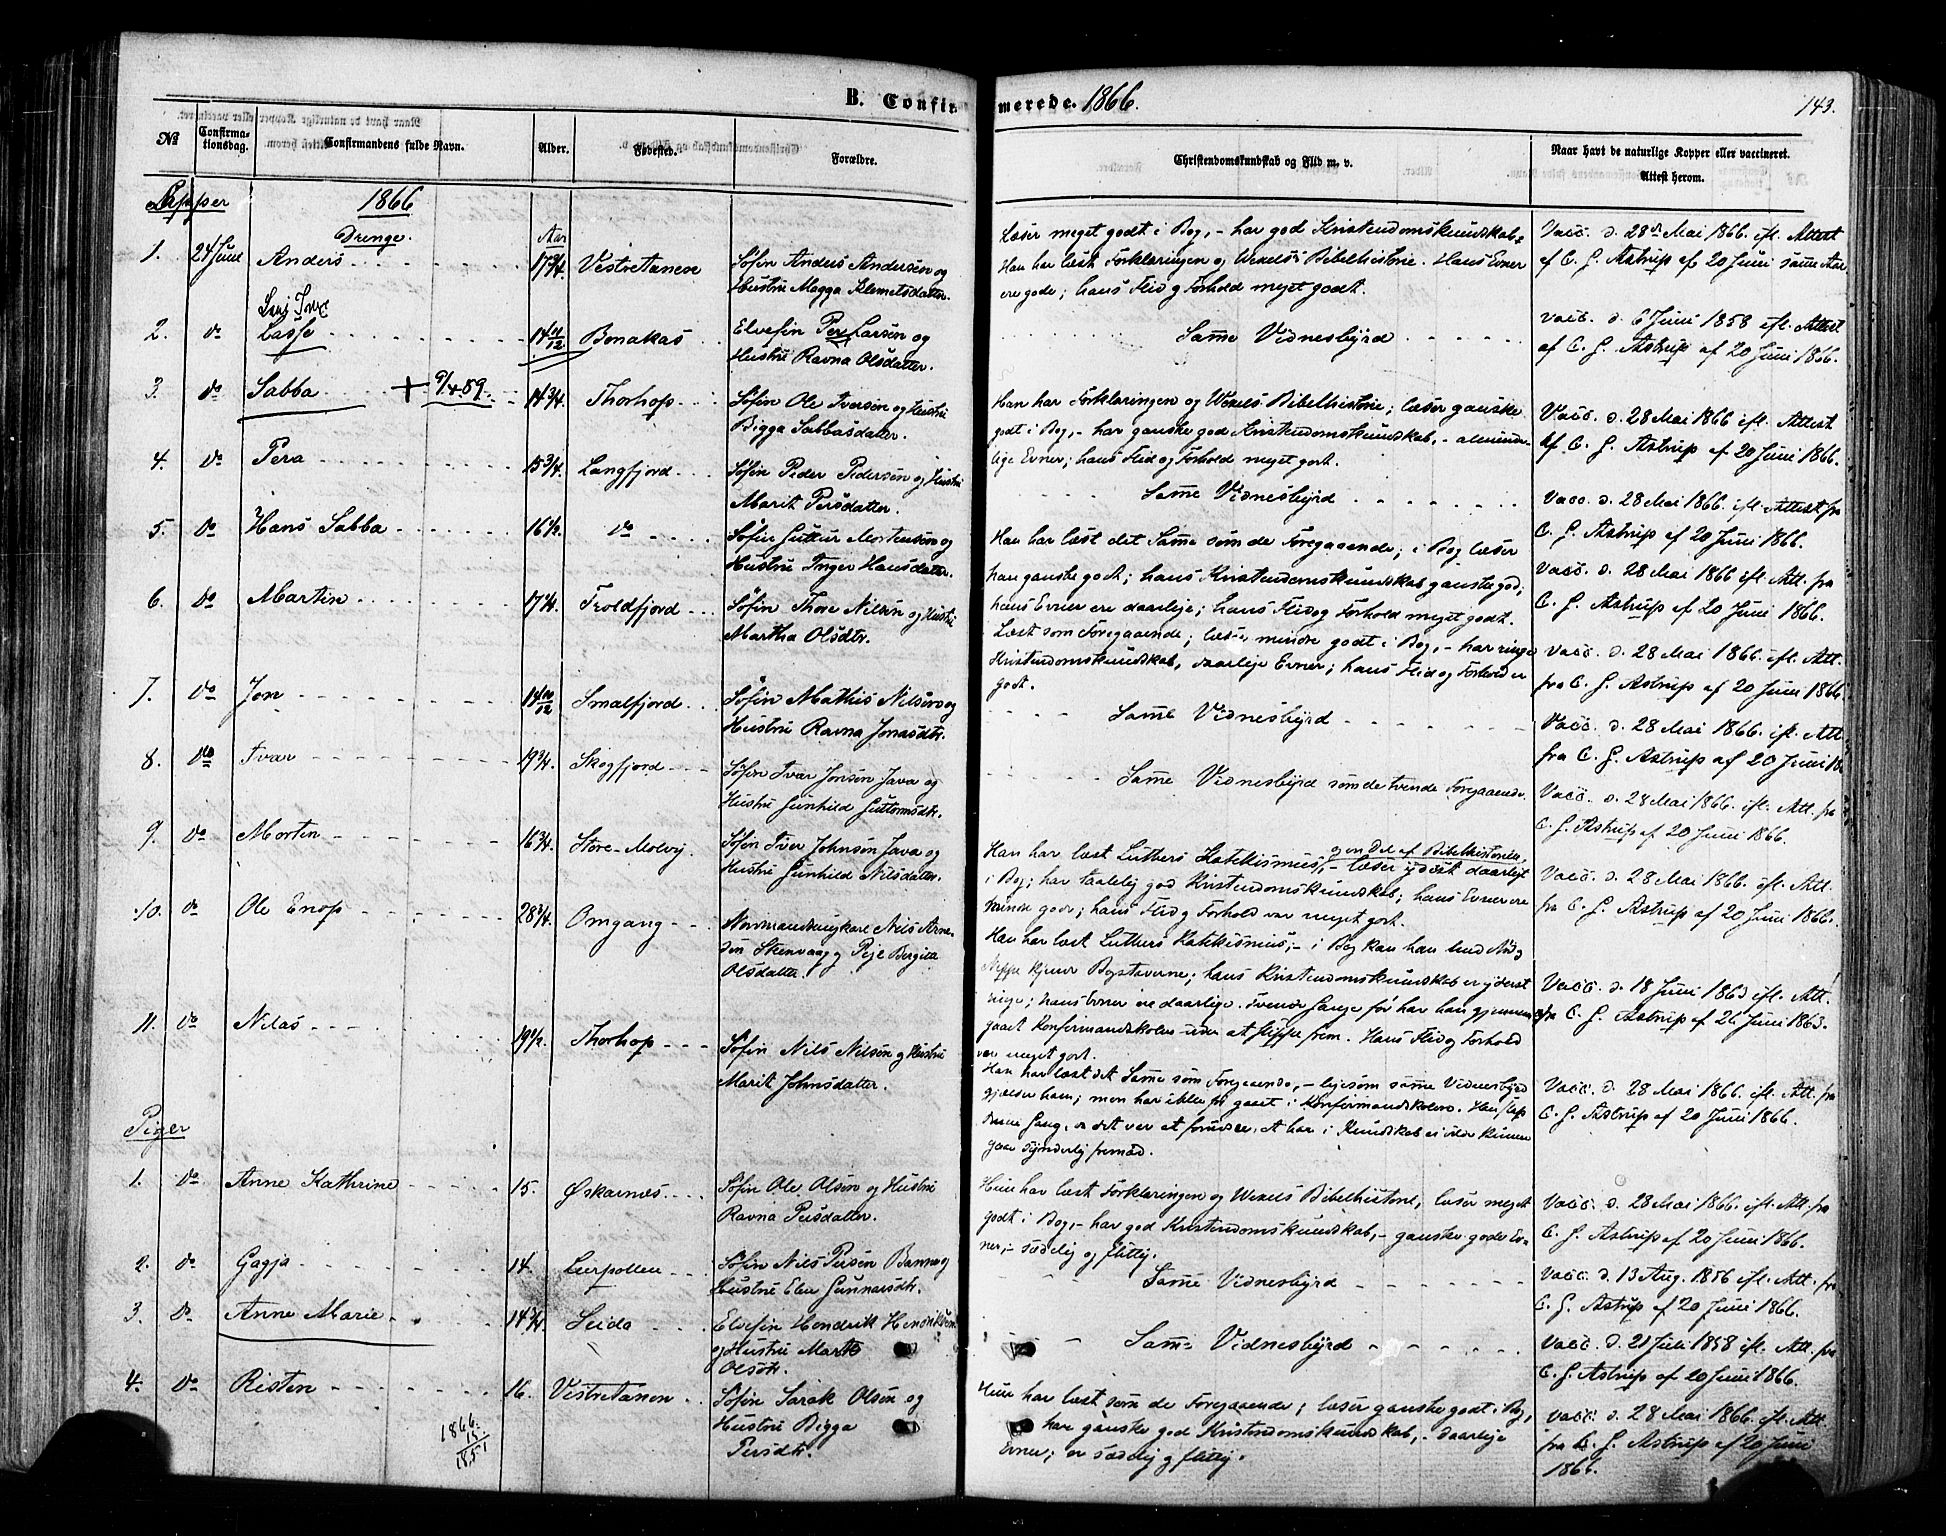 B. Confirmerede. 1866.
143.
No
Confirmationsdag.
Confirmandens fulde Navn.
Alder.
Fødested.
Forældre.
Christendomskundskab og Flid m. v.
Naar havt de naturlige Kopper eller vaccineret.
Attest herom.
Lapper
1866
Drenge.
Aar
1. 24 Juni Anders 17 3/4. Vestretanen Søfin Anders Andersen og
Hustru Magga Klemetsdatter.
Læser meget godt i Bog, - har god Kristendomskundskab.
Han har læst Forklaringen og Wexels Bibelhistorie. Hans Evner
ere gode; hans Flid og Forhold meget godt.
Vacc. d. 28de Mai 1866. efl. Attest
af C. G. Astrup af 20 Juni samme Aar
2. do Lasse 14 11/12 Bonakas Elvefin Per Larsen og
Hustru Ravna Olsdatter.
Samme Vidnesbyrd
vacc. d. 6 Juni 1858 efl. Attest
af C. G. Astrup af 20 Juni 1866.
3. do Sabba + 9/4 89. 14 3/4. Thorhop Søfin Ole Iversen og Hustru
Bigga Sabbasdatter.
Han har Forklaringen og Wexels Bibelhistorie; læser ganske
godt i Bog, - har ganske god Kristendomskundskab, - almindelige Evner; hans Flid og Forhold meget godt.
Vacc. d. 28 Mai 1866 efl. Attest
af C. G. Astrup af 20 Juni 1866.
4. do Pera 15 3/4. Langfjord Søfin Peder Pedersen og Hustru
Marit Persdatter.
Samme Vidnesbyrd
Vacc. d. 28 Mai 1866. efl. Attest fra
C. G. Astrup af 20 Juni 1866.
5. do Hans Sabba 16 1/2. do Søfin Guttur Mortensen og
Hustru Inger Hansdatter.
Han har læst det Samme som de Foregaaende; i Bog læser
han ganske godt; hans Kristendomskundskab ganske god;
hans Evner ere daarlige; hans Flid og Forhold meget godt.
Vacc. d. 28 Mai 1866 efl. Att. fra
C. G. Astrup af 20 Juni 1866.
6. do Martin 17 1/4. Troldfjord Søfin Thore Nilsen og Hustru
Martha Olsdtr.
Læst som Foregaaende; læser mindre godt i Bog, - har ringe
Kristendomskundskab, daarlige Evner; hans Flid og Forhold er
godt.
vacc. d. 28 Mai 1866. efl. Att.
fra C. G. Astrup af 20 Juni 1866
7. do Jon 14 10/12 Smalfjord Søfin Mathis Nilsen og
Hustru Ravna Jonasdtr.
Samme Vidnesbyrd
Vacc. d. 28 Mai 1866. efl. Att.
fra C. G. Astrup af 20 Juni 18
8. do Ivar 19 3/4. Skogfjord Søfin Ivar Jonsen Java og
Hustru Gunhild Guttormsdtr.
Samme Vidnesbyrd som de tvende Foregaaende.
Vacc. d. 28 Mai 1866. efl. Att. fra
C. G. Astrup af 20 Juni 1866.
9. do Morten 16 3/4. Store-Molvig Søfin Iver Johnsen Java og
Hustru Gunhild Nilsdatter.
Han har læst Luthers Katekismus, og en Del af Bibelhistorien, - læser yderst daarligt
i Bog; har taalelig god Kristendomskundskab; hans Evner ere
gode; hans Flid og Forhold var meget godt.
Vacc. d. 28 Mai 1866. efl. Att.
fra C. G. Astrup af 20 Juni 1866.
10. do Ole Enop 28 3/4. Omgang Nordmandsungkarl Nils Arnesen Stenvaag og Pige Bergitta
Olsdatter.
Han har læst Luthers Katekismus; - i Bog kan han med Nød og
Neppe kjende Bogstaverne; hans Kristendomskundskab er yderst
ringe; hans Evner ere daarlige. Tvende Gange før har han gjennemgaaet Konfirmandskolen uden at slippe frem. Hans Flid og Forhold
var meget godt.
Vacc. d. 18 Juni 1863 efl. Att.
fra C. G. Astrup af 26 Juni 1863.
11. do Nilas 19 1/2. Thorhop Søfin Nils Nilsen og Hustru
Marit Johnsdatter.
Han har læst det Samme som Foregaaende, - ligesom samme Vidnesbyrd
gjælder ham; men har ikke før gaaet i Konfirmandskolen. Han slap
denne Gang, da det var at forudsee, at han i Kundskab ei vilde kunne
gaae synderlig fremad.
Vacc. d. 28 Mai 1866. efl. Att. fra
C. G. Astrup af 20 Juni 1866.
Piger
1. do Anne Kathrine 15. Øskarnes Søfin Ole Olsen og Hustru
Ravna Persdatter.
Hun har læst Forklaringen og Wexels Bibelhistorie, læser meget
godt i Bog, - har god Kristendomskundskab, - ganske gode Evner, - sædelig og flittig.
Vacc. d. 28 Mai 1866. efl. Att. fra
C. G. Astrup af 20 Juni 1866.
2. do Gagja 14. Leerpollen Søfin Nils Persen Banne og
Hustru Elen Gunnarsdtr.
Samme Vidnesbyrd
Vacc. d. 13 Aug. 1856 efl. Att. fra
C. G. Astrup af 20 Juni 1866.
3. do Anne Marie 14 3/4 Seida Elvefin Hendrik Henriksen
og Hustru Marit
Olsdtr.
Samme Vidnesbyrd
Vacc. d. 21 Juli 1858 efl. Att. fra
C. G. Astrup af 20 Juni 1866.
4. do Risten 16. Vestretanen Søfin Sarak Olsen og
Hustru Bigga
Persdtr.
Hun har læst som de Foregaaende; læser ganske godt i Bog,
har ganske god Kristendomskundskab, - daarlige
Evner; er sædelig og flittig.
vacc. d. 28 Mai 1866. efl. Att.
fra C. G. Astrup af 20 Juni
1866.
1866.
15.
1851